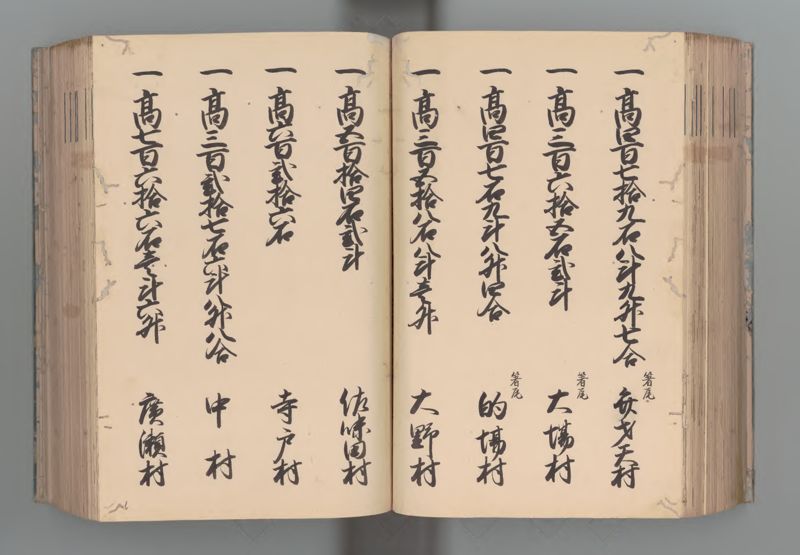 一高四百七拾九石八斗九升七合 箸尾 弁才天村
一高三百六拾五石弐斗 箸尾 大場村
一高四百七石九斗八升四合 箸尾 的場村
一高三百五拾八石八斗壱升 大野村
一高五百拾四石弐斗 佐味田村
一高六百弐拾六石 寺戸村
一高三百弐拾七石六斗八升八合 中村
一高七百六拾六石壱斗六升 廣瀬村